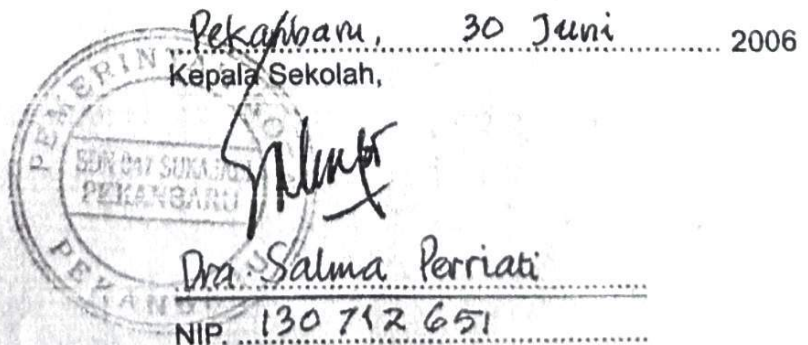 Pekanbaru, 30 Juni 2006
Kepala Sekolah,
PEMERINTAH KO
SDN 047 SUKAJADI
PEKANBARU
PEKANBARU
Dra. Salma Perriati
NIP. 130 712 651